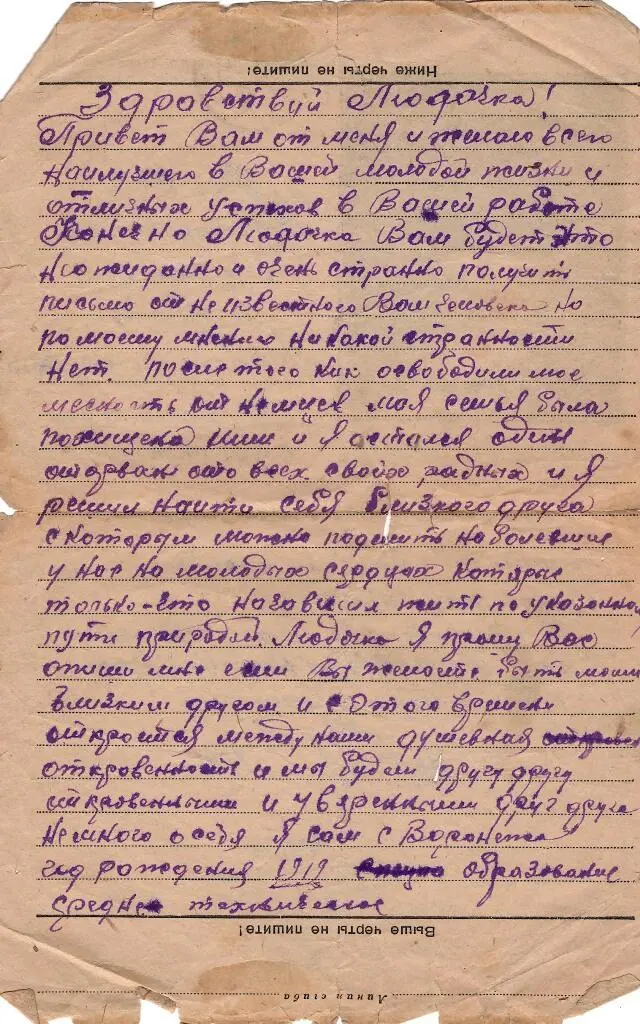 Ниже черты не пишите!
Здравствуй Людочка!
Привет Вам от меня и желаю всего
наилузшего в Вашей молодой жизни и
отлизных успехов в Вашей работе
Конечно Людочка Вам будет это
неожиданно и очень странно получить
письмо от неизвестного Вам человека но
по моему мнению никакой странности
нет. после того как освободили мое
местность от немцев моя семья была
похищена ими и я остался один
оторван ото всех своих родных и я
решил найти себя близкого друга
с которым можно поделить наболевшие
у нас на молодых сердцах которые
только-что жить по указонной
пути природой. Людочка я прошу Вас
опиши мне если Вы желаите быть моим
близким другом и с этого времени
откроется между нами душевная
откровенность и мы будем друг другу
откровенными и увяренными друг друга
немного о себя я сам с Воронежа
год рождения 1919 образование
средне техническое
Выше черты не пишите!
Линия сгиба